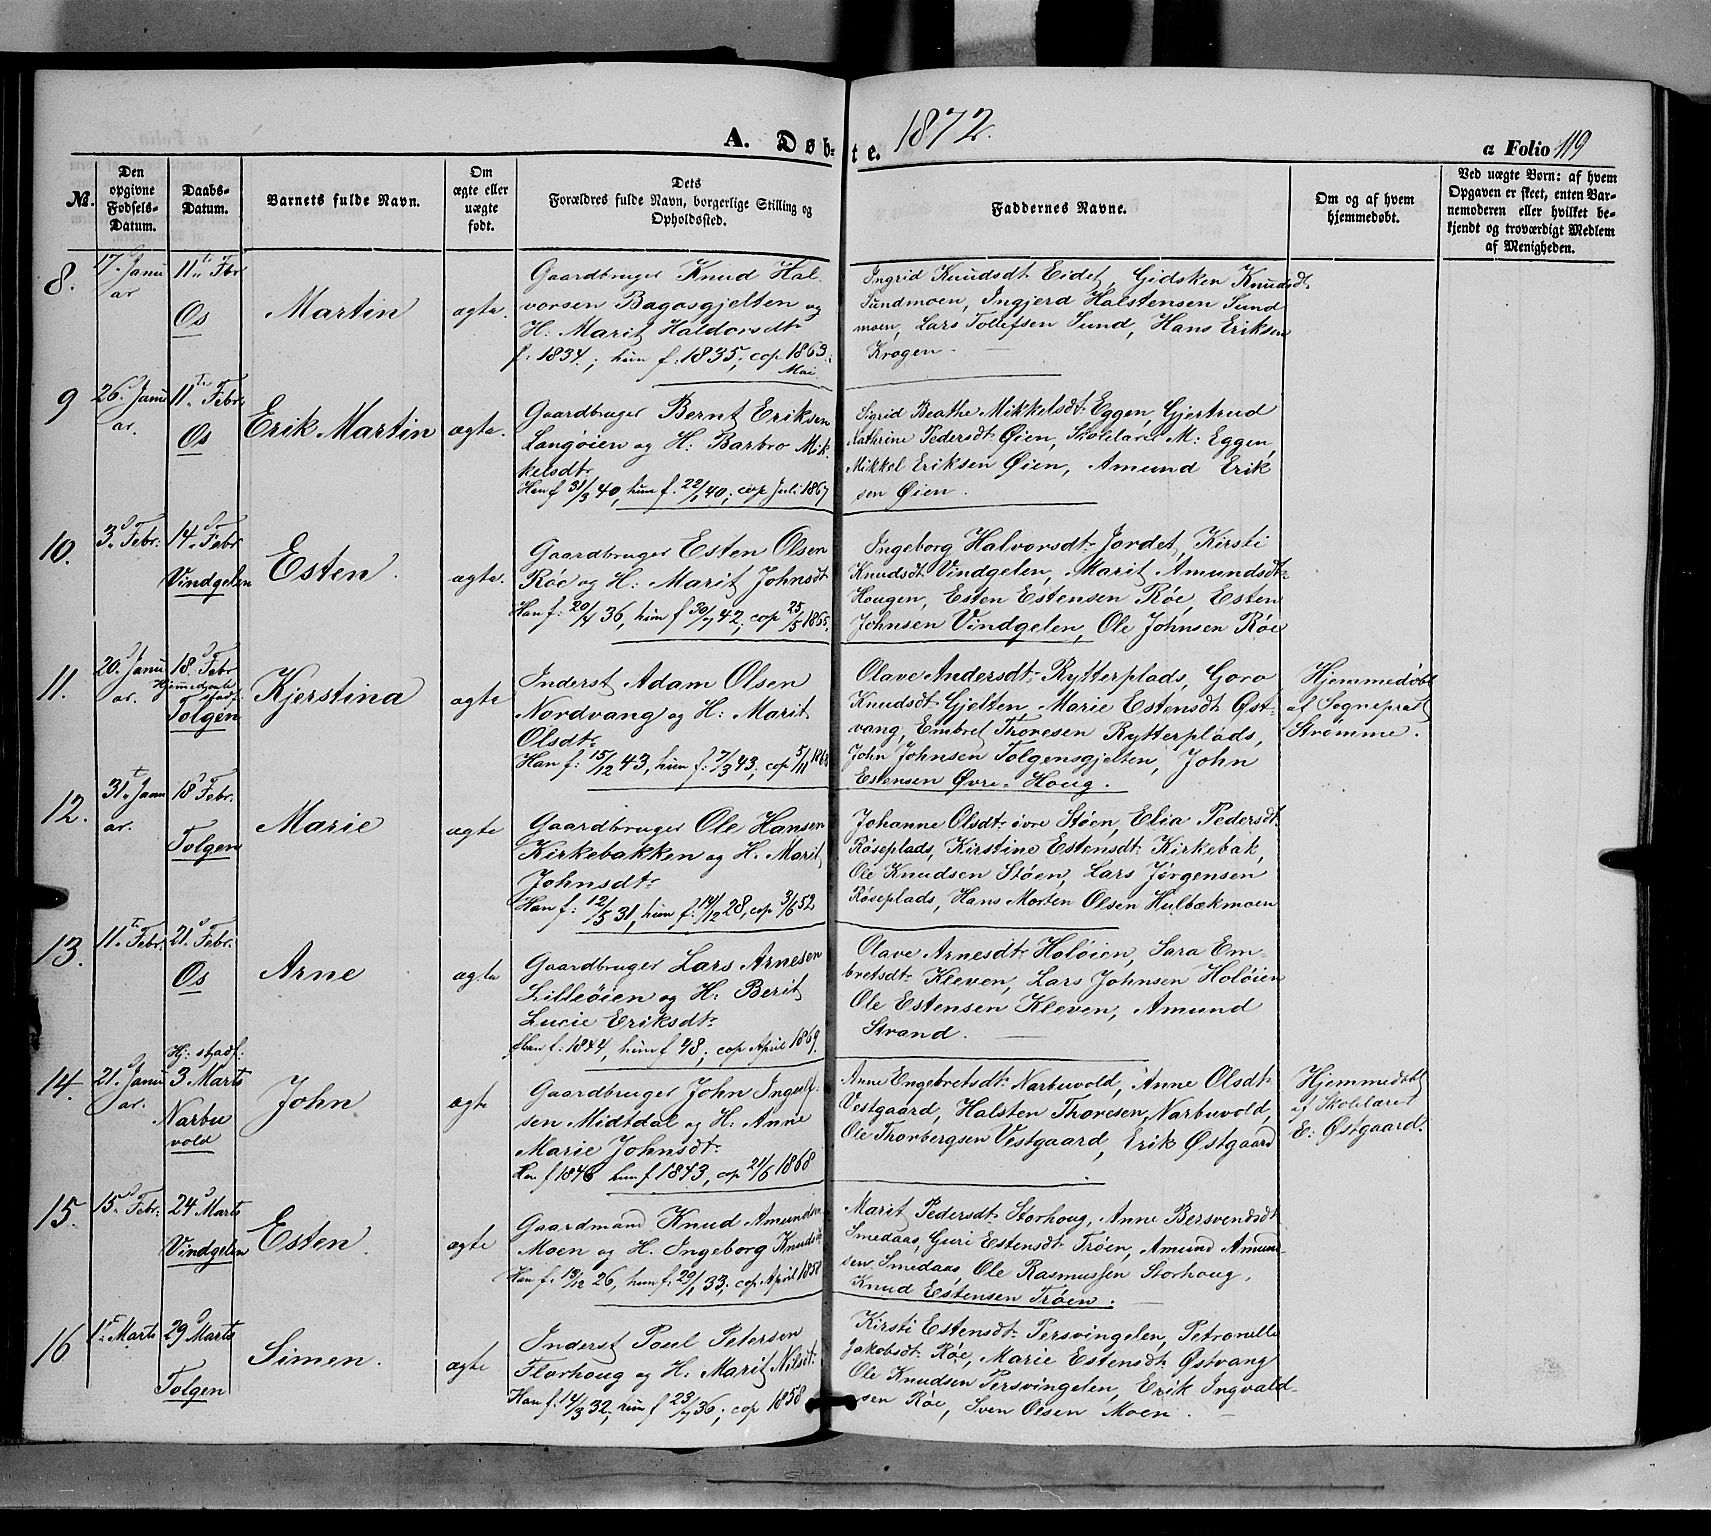 A. Døb-
te.
1872.
a Folio 119
№.
Den
opgivne
Fødsels-
Datum.
Daabs-
Datum.
Barnets fulde Navn.
Om
ægte eller
uægte
født.
Dets
Forældres fulde Navn, borgerlige Stilling og
Opholdssted.
Faddernes Navne.
Om og af hvem
hjemmedøbt.
Ved uægte Børn: af hvem
Opgaven er skeet, enten Bar-
nemoderen eller hvilket be-
kjendt og troværdigt Medlem
af Menigheden.
8.
17. Janu
ar
11. Fbr
Os
Martin
ægte.
Gaardbruger Knud Hal
vorsen Bagosgjelten og
H. Marit Haldorsdtr
f. 1834; hun f: 1835; cop 1863.
Mai
Ingrid Knudsdt. Eidet, Gidsken Knudsdt.
Sundmoen, Ingjerd Halstensen Sund
moen, Lars Tollefsen Sund, Hans Eriksen
Krogen.
9
26. Janu
ar.
11. Febr.
Os
Erik Martin
ægte.
Gaardbruger Bernt Eriksen
Langøien og H: Barbro Mik
kelsdtr
Han f 31/3 40, hun f: 22/1 40; cop Juli 1867
Sigrid Beathe Mikkelsdt. Eggen, Gjertrud
Kathrine Pedersdt. Øien, Skolelærer M: Eggen,
Mikkel Eriksen Øien, Amund Erik
sen Øien.
10.
3. Febr.
14. Febr
Vindgelen
Esten.
ægte.
Gaardbruger Esten Olsen
Røe og H: Marit Johnsdt
Han f: 20/4 36, hun f 30/7 42; cop 25/5 1865.
Ingeborg Halvorsdt. Jordet, Kirsti
Knudsdt Vindgelen, Marit Amundsdt.
Hougen, Esten Estensen Røe, Esten
Johnsen Vindgelen, Ole Johnsen Røe
11.
20. Janu
ar.
18. Febr
Hjemmedaab
stadf.
Tolgen
Kjerstina
ægte
Inderst Adam Olsen
Nordvang og H: Marit
Olsdtr
Han f: 15/12 43, hun f: 7/3 43, cop 5/11 1868
Olave Andersdt. Rytterplads, Goro
Knudsdt Gjelten, Marie Estensdt Øst-
vang, Embret Thoresen Rytterplads,
John Johnsen Tolgensgjelten, John
Estensen Øvre-Houg.
Hjemmedøbt
af Sognepræst
Strømme.
12.
31. Janu
ar.
18 Febr.
Tolgen
Marie
ægte
Gaardbruger Ole Hansen
Kirkebakken og H. Marit
Johnsdt.
Han f: 12/5 31, hun f: 14/12 28, cop 3/6 52
Johanne Olsdt. øvre Støen, Elia Pedersdt.
Røseplads, Kirstine Estensdt. Kirkebak,
Ole Knudsen Støen, Lars Jørgensen
Røseplads, Hans Morten Olsen Hulbækmoen
13.
11. Febr
21. Febr.
Os
Arne
ægte
Gaardbruger Lars Arnesen
Lilleøien og H: Berit
Lucie Eriksdt.
Han f: 1844, hun f 48; cop April 1869.
Olave Arnesdt. Holøien, Sara Em-
bretsdt. Kleven, Lars Johnsen Holøien
Ole Estensen Kleven, Amund
Strand.
14.
21. Janu
ar.
Hj: stadf:
3 Marts
Narbu
vold
John
ægte
Gaardbruger John Ingeulf-
sen Midtdal og H: Anne
Marie Johnsdt.
Han f 1846 hun f 1843, cop 21/6 1868
Anne Engebretsdt. Narbuvold, Anne Olsdt.
Vestgaard, Halsten Thoresen, Narbuvold,
Ole Thorbergsen Vestgaard, Erik Østgaard
Hjemmedøbt
af Skolelærer
E: Østgaard.
15.
15. Febr.
24 Marts
Vindgelen
Esten.
ægte
Gaardmand Knud Amundsen
Moen og H. Ingeborg Knudsdt
Han f: 13/12 26, hun f: 29/1 33; cop April 1858
Marit Pedersdt. Storhoug, Anne Bersvendsdt
Smedaas, Guri Estensdt. Trøen, Amund Amund-
sen Smedaas Ole Rasmussen Storhoug,
Knud Estensen Trøen.
16
1. Marts
29 Marts
Tolgen
Simen.
ægte
Inderst Poul Petersen
Florhoug og H. Marit Nilsdt:
Han f: 14/3 32, hun f 23/7 36; cop 1858
Kirsti Estensdt. Persvingelen, Petronille
Jakobsdt. Røe, Marie Estensdt. Østvang
Ole Knudsen Persvingelen, Erik Ingvald-
sen Røe, Sven Olsen Moen.